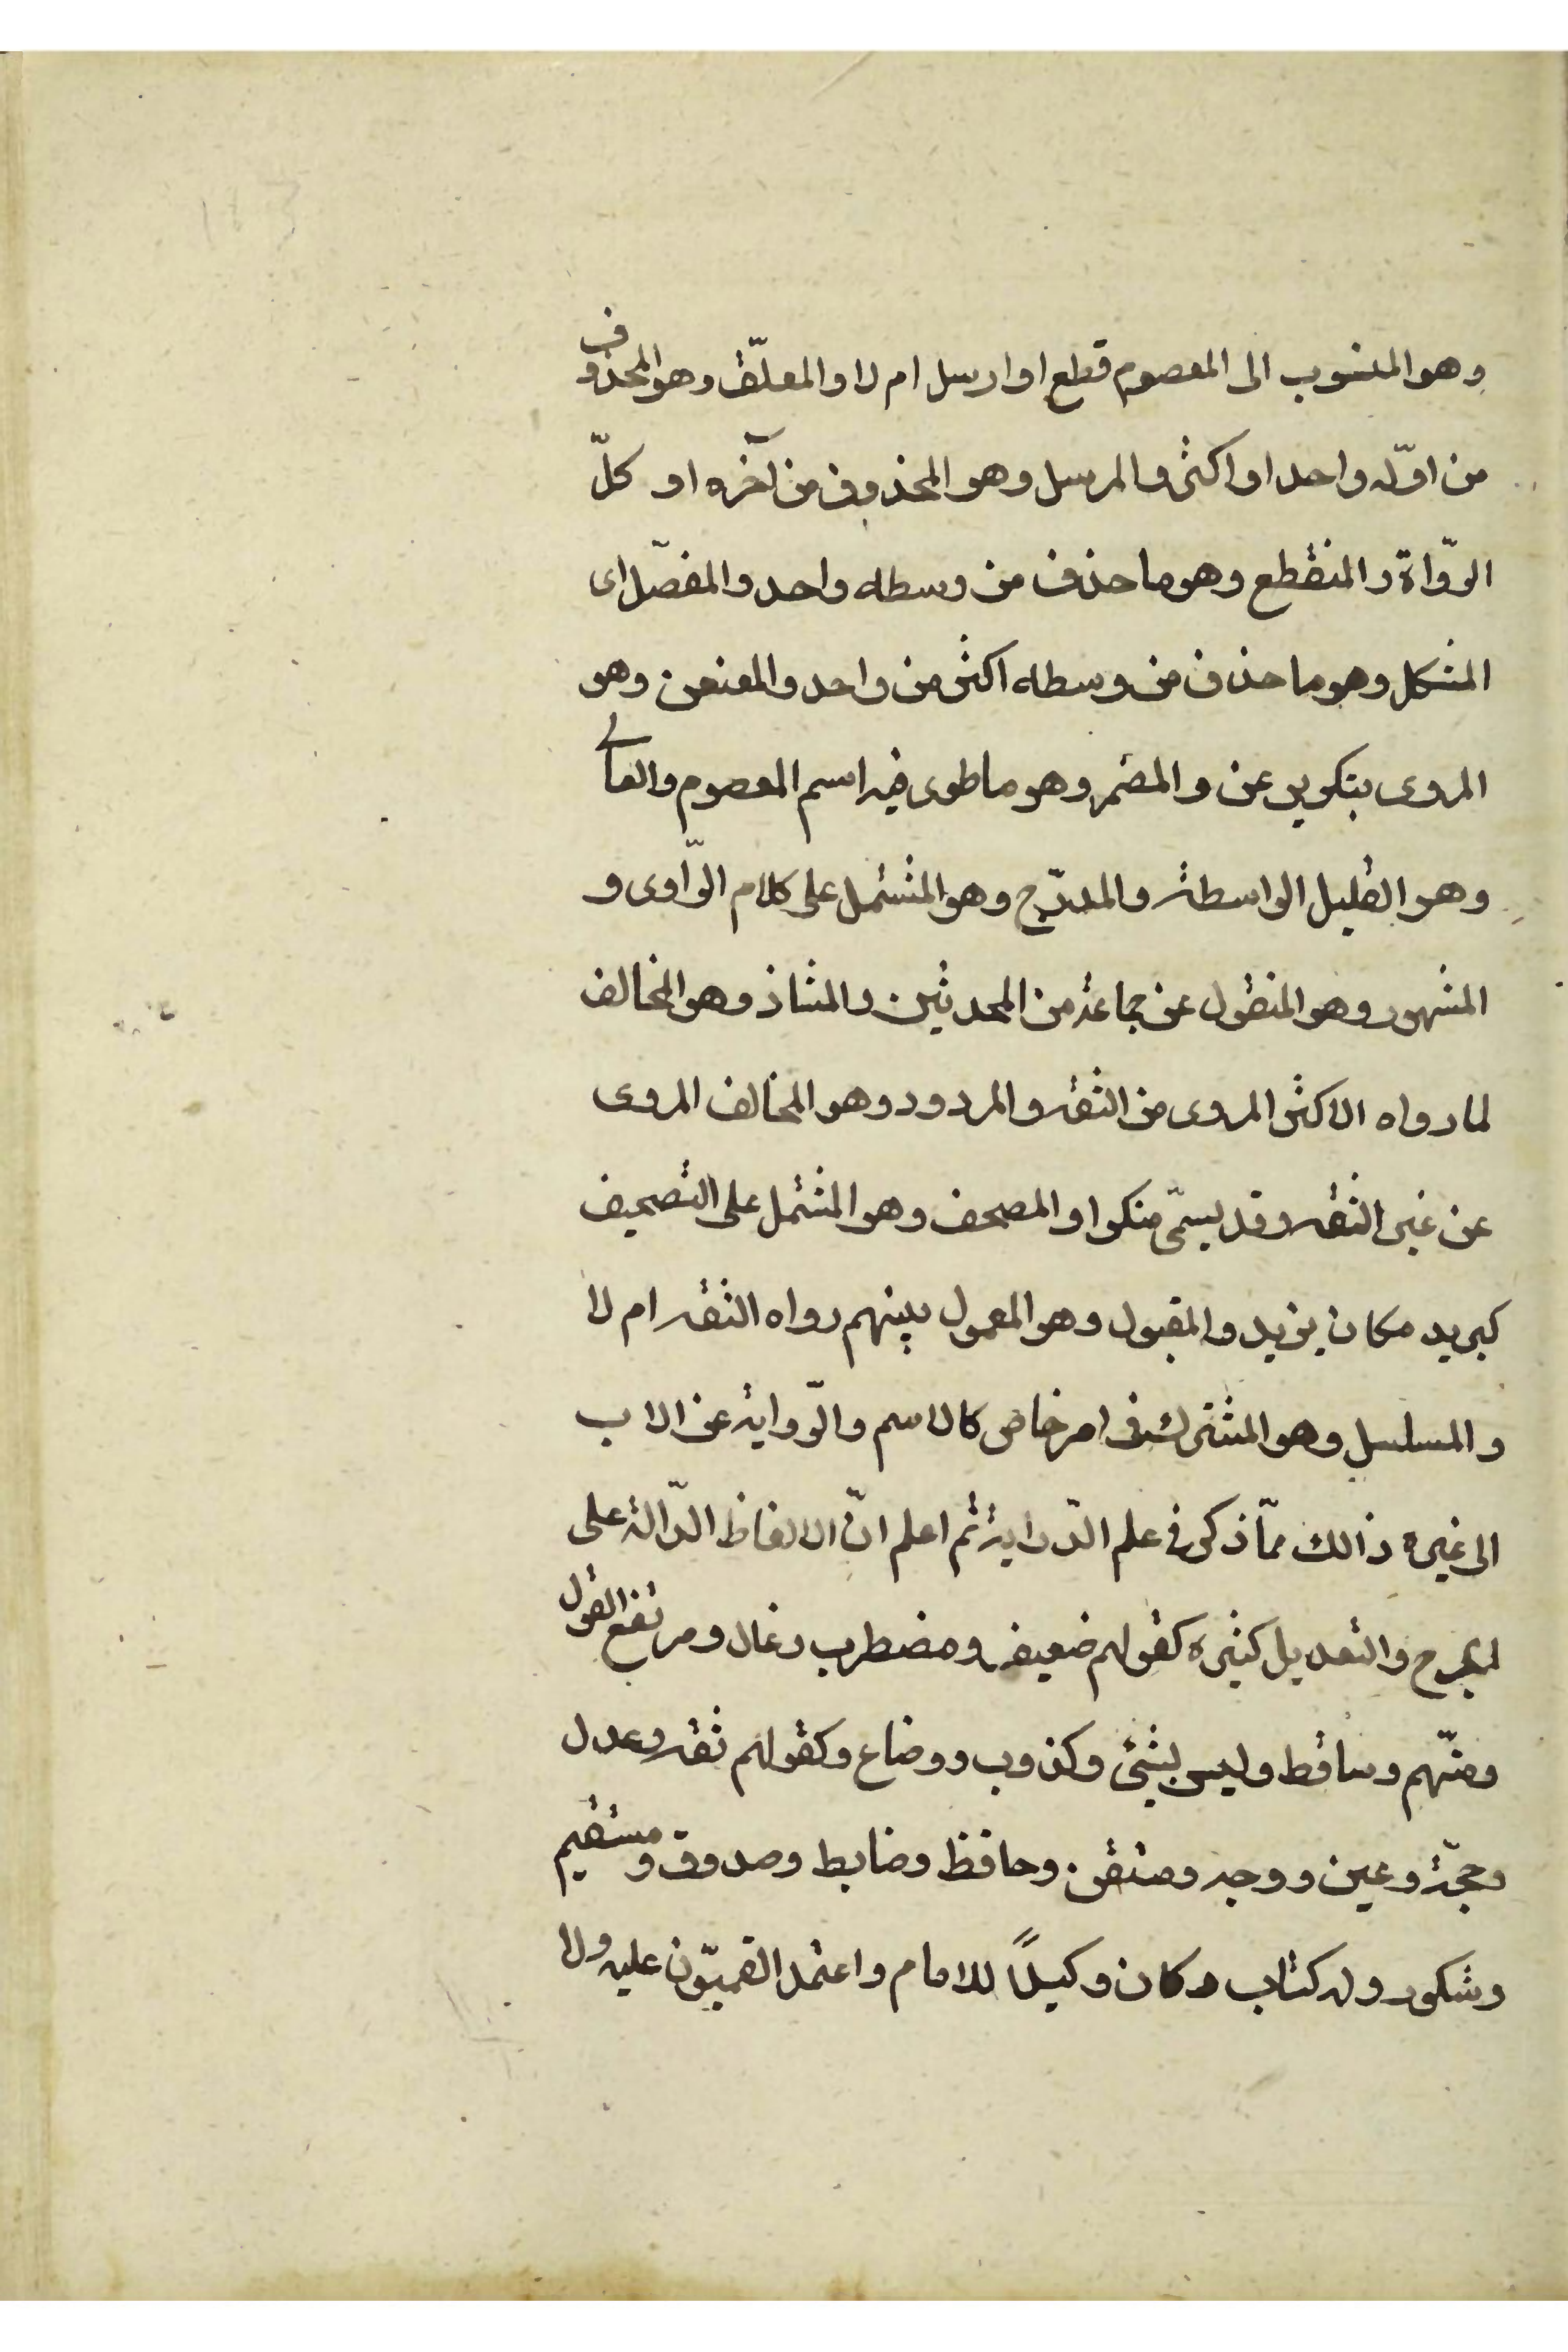 وهو المنسوب الى المعصوم قطع او ارسل ام لا والمعلّق وهو المحذوف
من اوّله واحد او اكثر والمرسل وهو المحذوف من آخره او كلّ
الرّواة والمنقطع وهو ما حذف من وسطه واحد والمفصّل اى
المشكل وهو ما حذف من وسطه اكثر من واحد والمعنعن وهو
المروى بتكرير عن والمضمر وهو ما طوى فيه اسم المعصوم والعالى
وهو القليل الواسطة والمدرّج وهو المشتمل على كلام الرّاوى و
المشهور وهو المنقول عن جماعة من المحدثين والشاذ وهو المخالف
لما رواه الاكثر المروى من الثقه والمردود وهو المخالف المروى
عن غير الثقه وقد يسمّى منكرا والمصحف وهو المشتمل على التصحيف
كبريد مكان يزيد والمقبول وهو المعمول بينهم رواه الثقه ام لا
والمسلسل وهو المشترك فى امر خاص كالاسم والرّواية عن الاب
الى غيره ذالك ممّا ذكر فى علم الدّراية ثم اعلم انّ الالفاظ الدّالة على
الجرح والتعديل كثيره كقولهم ضعيف ومضطرب وغال ومرتفع القول
ومتّهم وساقط وليس بشئ وكذوب ووضاع وكقولهم ثقه وعدل
وحجّة وعين ووجه ومتقن وحافظ وضابط وصدوق ومستقيم
وشكور وله كتاب وكان وكيلاً للامام واعتمد القميّون عليه ولا